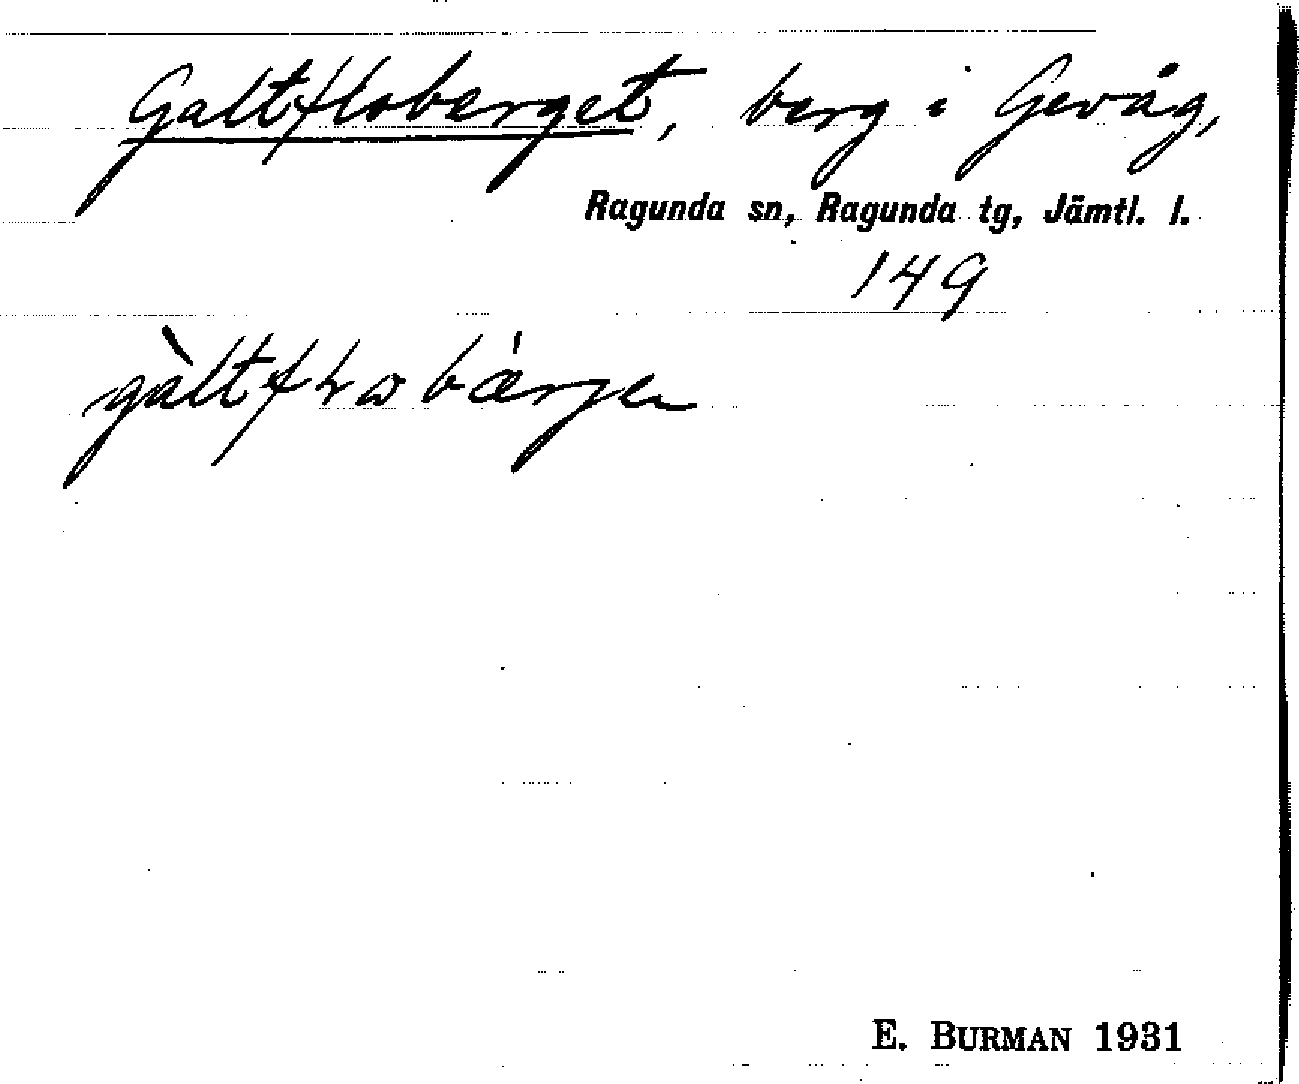 Galtfloberget, berg i Gevåg,
Ragunda sn, Ragunda tg, Jämtl. l.
149
E. BURMAN 1931